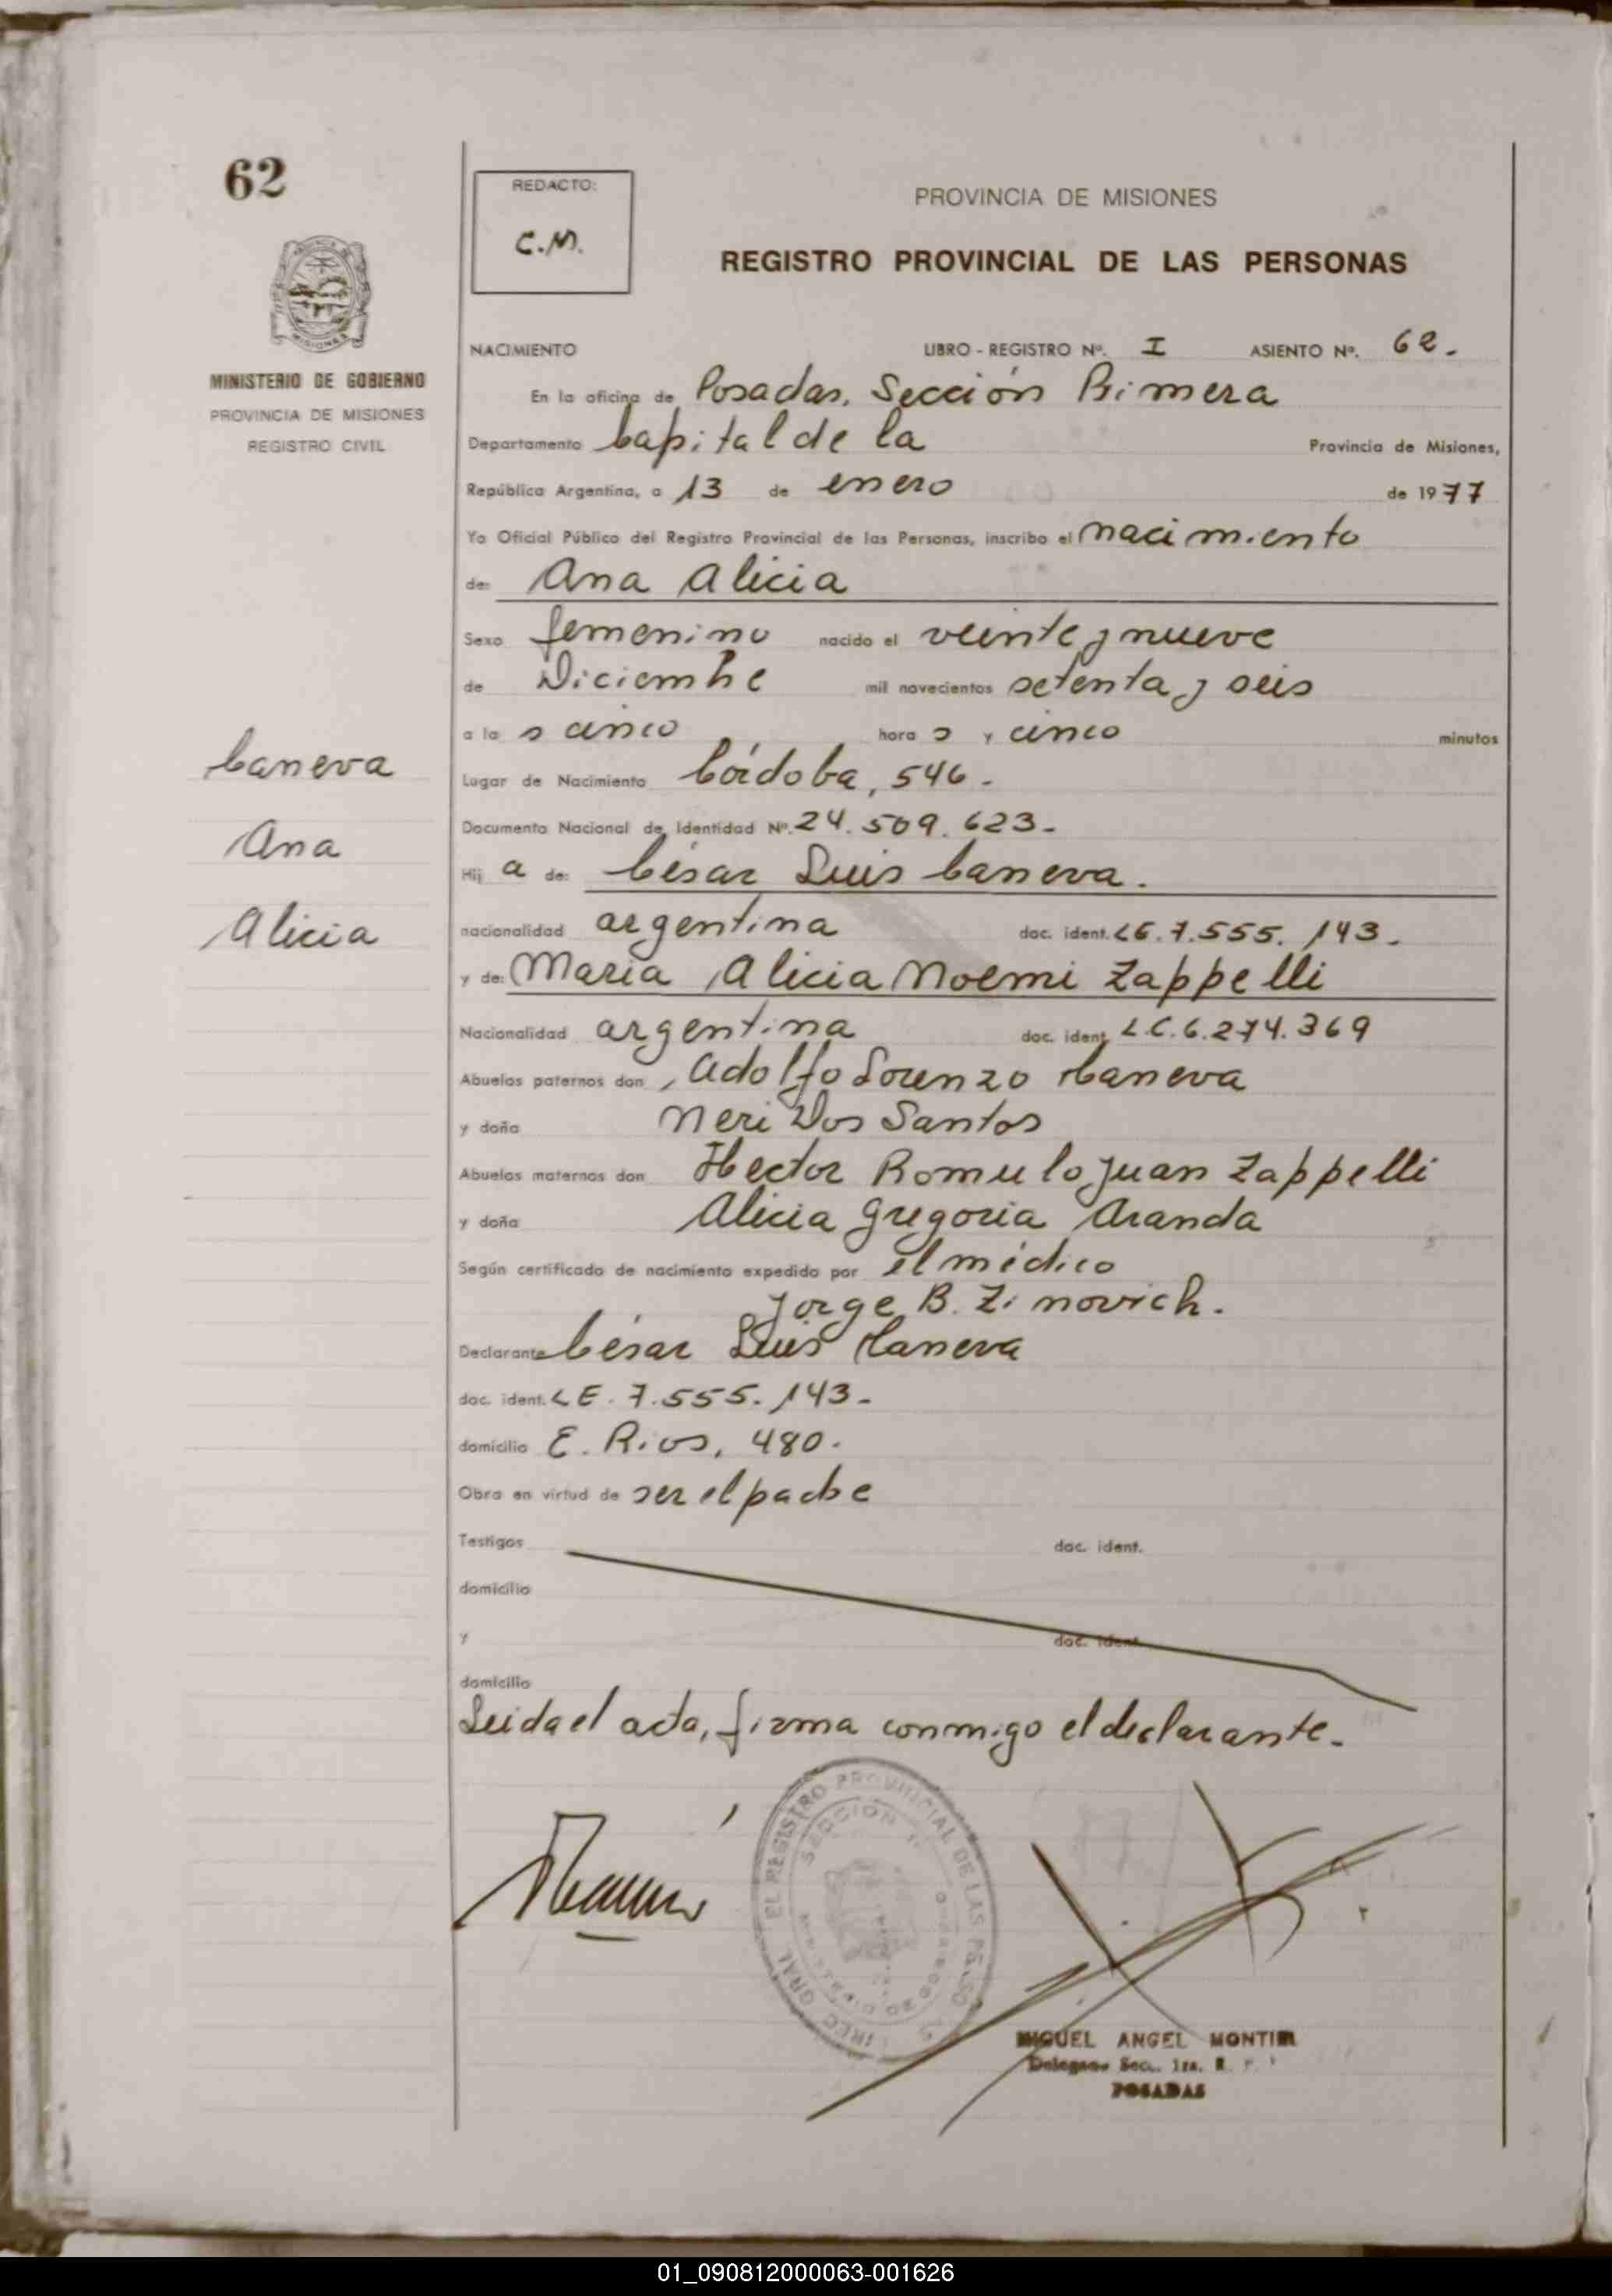 62
REDACTO:
C.M.
PROVINCIA DE MISIONES
REGISTRO PROVINCIAL DE LAS PERSONAS
MINISTERIO DE GOBIERNO
PROVINCIA DE MISIONES
REGISTRO CIVIL
NACIMIENTO LIBRO - REGISTRO Nº. I ASIENTO Nº. 62.
En la oficina de Posadas, Sección Primera
Departamento Capital de la Provincia de Misiones,
República Argentina, a 13 de enero de 1977
Yo Oficial Público del Registro Provincial de las Personas, inscribo el nacimiento
de: Ana Alicia
Sexo femenino nacido el veinte y nueve
de Diciembre mil novecientos setenta y seis
a la s cinco hora s y cinco minutos
Caneva
Ana
Alicia
Lugar de Nacimiento Córdoba, 546.-
Documento Nacional de Identidad Nº. 24.509.623-
Hij a de: César Luis Caneva.
nacionalidad argentina doc. ident. LE.7.555.143.
y de: Maria Alicia Noemi Zappelli
Nacionalidad argentina doc. ident. L.C.6.274.369
Abuelos paternos don Adolfo Lorenzo Caneva
y doña Neri Dos Santos
Abuelos maternos don Hector Romulo Juan Zappelli
y doña Alicia Gregoria Aranda
Según certificado de nacimiento expedido por el médico
Jorge B. Zinovich.
Declarante César Luis Caneva
doc. ident. LE. 7.555.143-
domicilio E. Rios, 480.
Obra en virtud de ser el padre
Testigos doc. ident.
domicilio
y doc. ident.
domicilio
Leida el acta, firma conmigo el declarante.
DIREC. GRAL. EL REGISTRO PROVINCIAL DE LAS PERSONAS
SECCION 1ª
MIGUEL ANGEL MONTIEL
Delegado Secc. 1ra. R. P.
POSADAS
01_090812000063-001626